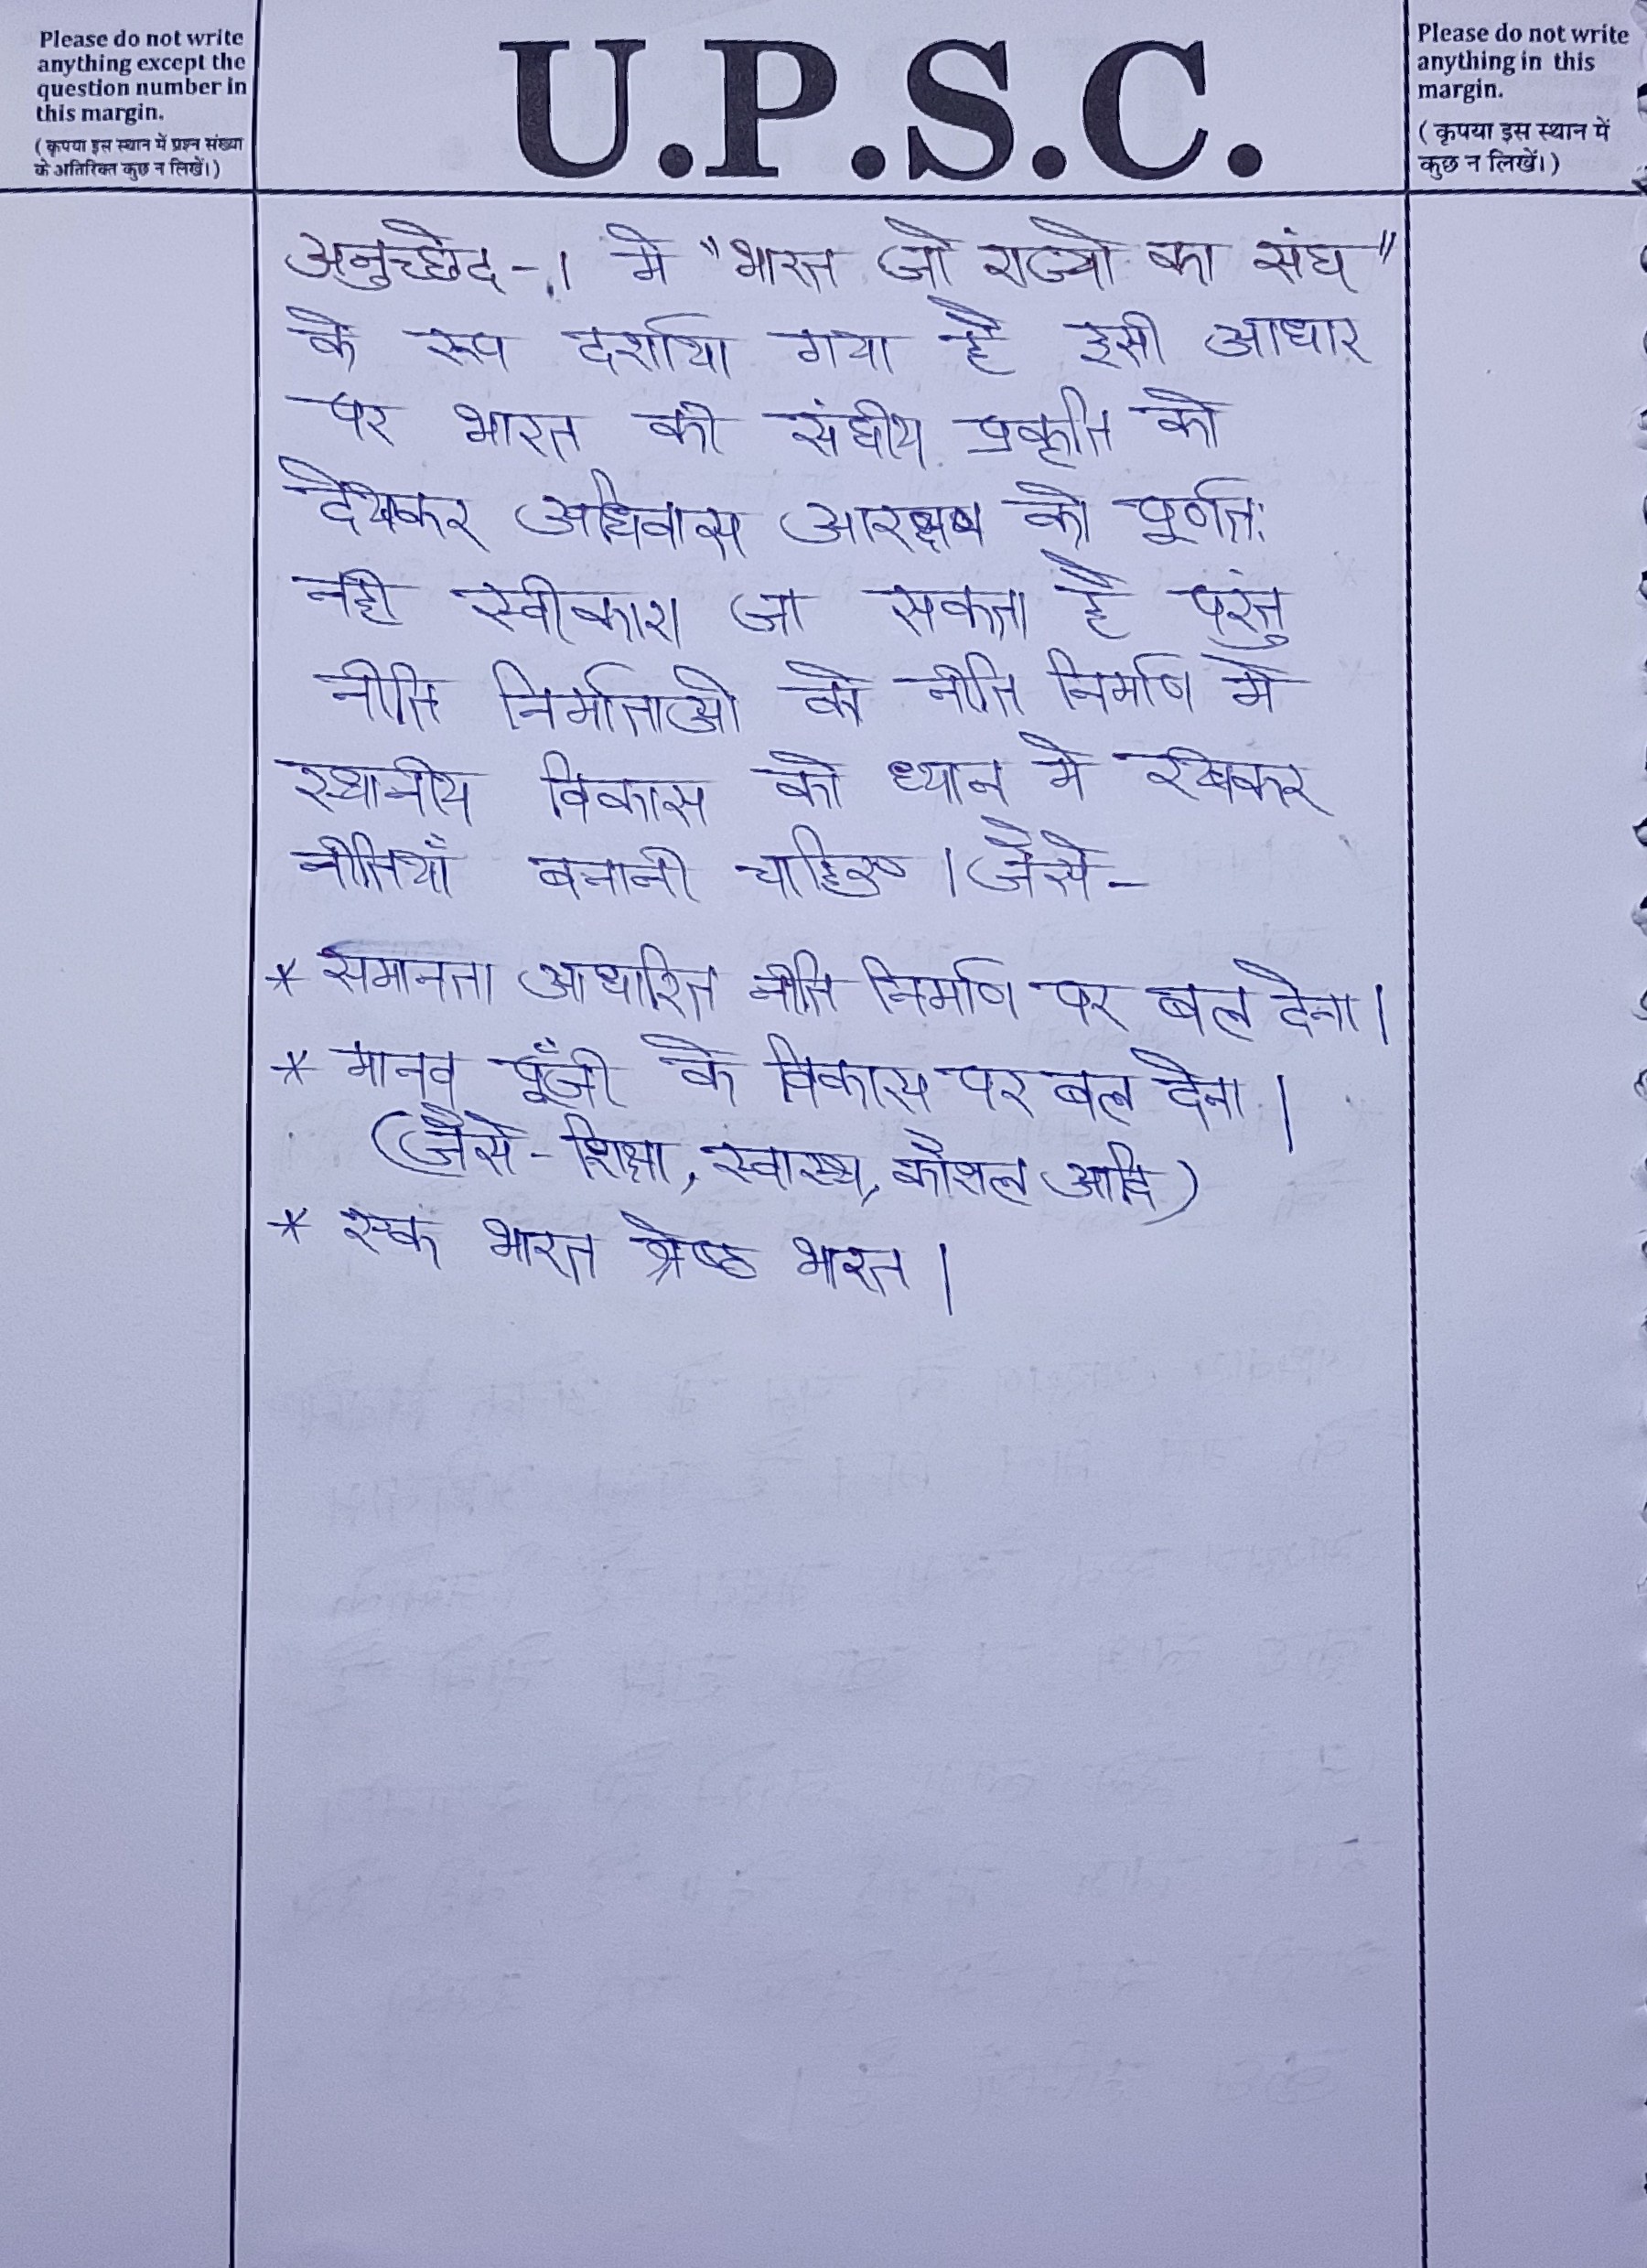 Please do not write
anything except the
question number in
this margin.
( कृपया इस स्थान में प्रश्न संख्या
के अतिरिक्त कुछ न लिखें। )
U.P.S.C.
Please do not write
anything in this
margin.
( कृपया इस स्थान में
कुछ न लिखें। )
अनुच्छेद-1 मे "भारत जो राज्यो का संघ"
के रूप दर्शाया गया है इसी आधार
पर भारत की संघीय प्रकृति को
देखकर अधिवास आरक्षण को पूर्णतः
नही स्वीकारा जा सकता है परंतु
नीति निर्माताओ को नीति निर्माण मे
स्थानीय विकास को ध्यान मे रखकर
नीतियाँ बनानी चाहिए । जैसे-
* समानता आधारित नीति निर्माण पर बल देना।
* मानव पूँजी के विकास पर बल देना |
(जैसे - शिक्षा, स्वास्थ्य, कौशल आदि)
* एक भारत श्रेष्ठ भारत |